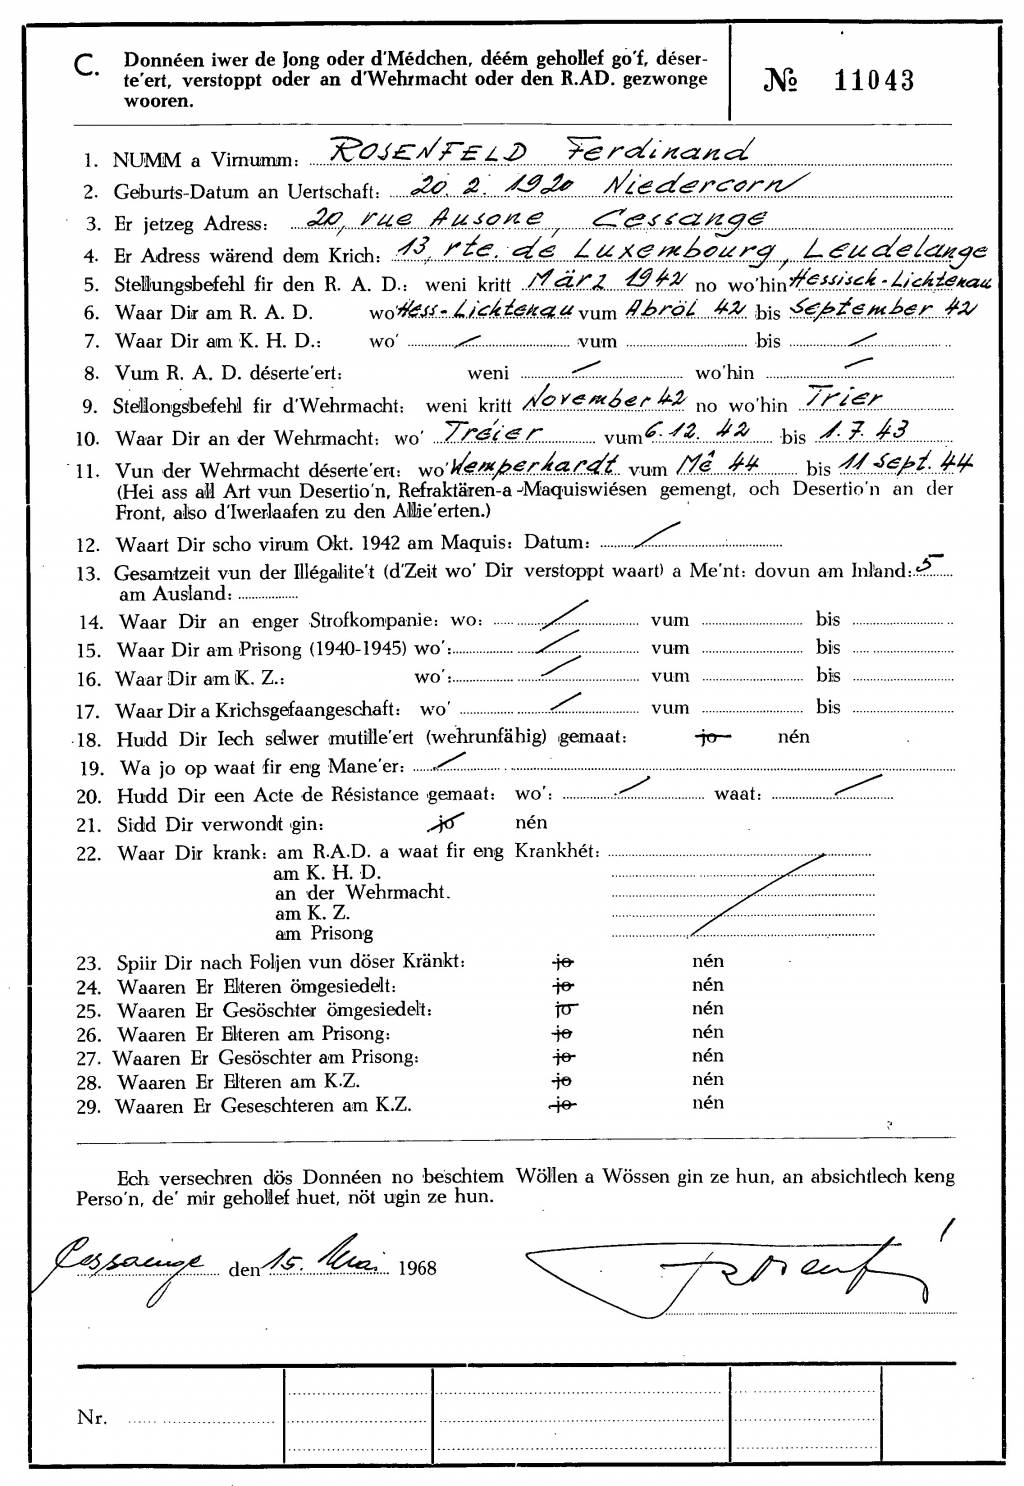 C. Donnéen iwer de Jong oder d'Médchen, déém gehollef go'f, déser-
te'ert, verstoppt oder an d'Wehrmacht oder den R.AD. gezwonge
wooren.
№ 11043
1. NUMM a Virnumm: ROSENFELD Ferdinand
2. Geburts-Datum an Uertschaft: 20. 2. 1920 Niedercorn
3. Er jetzeg Adress: 20, rue Ausone, Cessange
4. Er Adress wärend dem Krich: 13, rte. de Luxembourg, Leudelange
5. Stellungsbefehl fir den R. A. D.: weni kritt März 1942 no wo'hin Hessisch-Lichtenau
6. Waar Dir am R. A. D. wo Hess-Lichtenau vum Abröl 42 bis September 42
7. Waar Dir am K. H. D.: wo' vum bis
8. Vum R. A. D. déserte'ert: weni wo'hin
9. Stellongsbefehl fir d'Wehrmacht: weni kritt November 42 no wo'hin Trier
10. Waar Dir an der Wehrmacht: wo' Tréier vum 6. 12. 42 bis 1. 7. 43
11. Vun der Wehrmacht déserte'ert: wo' Kemperhardt vum Mê 44 bis 11 Sept. 44
(Hei ass all Art vun Desertio'n, Refraktären-a-Maquiswiésen gemengt, och Desertio'n an der
Front, also d'Iwerlaafen zu den Allie'erten.)
12. Waart Dir scho virum Okt. 1942 am Maquis: Datum:
13. Gesamtzeit vun der Illégalite't (d'Zeit wo' Dir verstoppt waart) a Me'nt: dovun am Inland: 5
am Ausland:
14. Waar Dir an enger Strofkompanie: wo: vum bis
15. Waar Dir am Prisong (1940-1945) wo': vum bis
16. Waar Dir am K. Z.: wo': vum bis
17. Waar Dir a Krichsgefaangeschaft: wo' vum bis
18. Hudd Dir Iech selwer mutille'ert (wehrunfähig) gemaat: jo nén
19. Wa jo op waat fir eng Mane'er:
20. Hudd Dir een Acte de Résistance gemaat: wo': waat:
21. Sidd Dir verwondt gin: jo nén
22. Waar Dir krank: am R.A.D. a waat fir eng Krankhét:
am K. H. D.
an der Wehrmacht.
am K. Z.
am Prisong
23. Spiir Dir nach Foljen vun döser Kränkt: jo nén
24. Waaren Er Elteren ömgesiedelt: jo nén
25. Waaren Er Gesöschter ömgesiedelt: jo nén
26. Waaren Er Elteren am Prisong: jo nén
27. Waaren Er Gesöschter am Prisong: jo nén
28. Waaren Er Elteren am K.Z. jo nén
29. Waaren Er Geseschteren am K.Z. jo nén
Ech versechren dös Donnéen no beschtem Wöllen a Wössen gin ze hun, an absichtlech keng
Perso'n, de' mir gehollef huet, nöt ugin ze hun.
Cessange den 15. Mai 1968
Nr.